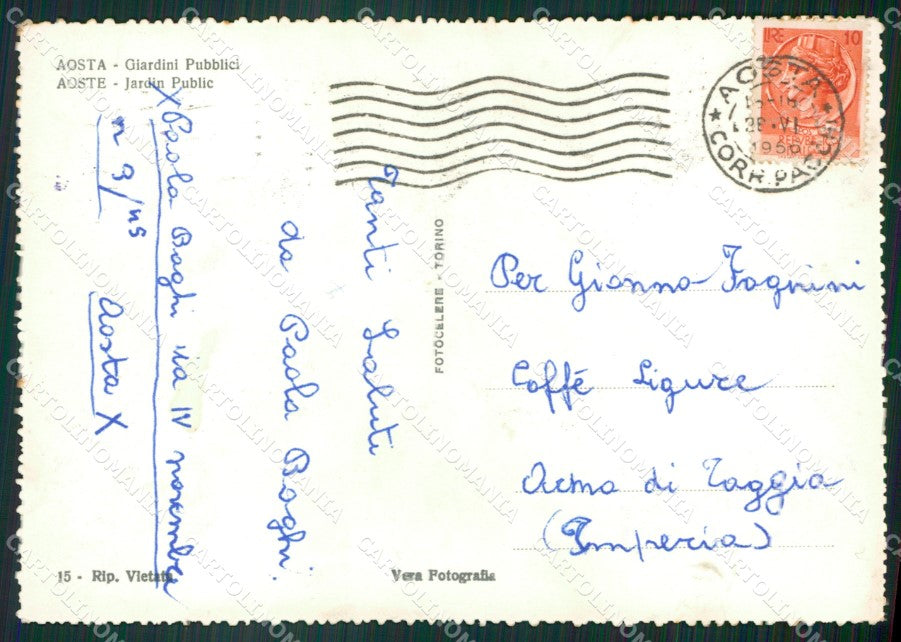 AOSTA - Giardini Pubblici
AOSTE - Jardin Public
X Paola Boghi via IV novembre
n 9/45
Aosta X
Tanti Saluti
da Paola Boghi.
FOTOCELERE - TORINO
LIRE 10
AOSTA
28-VI
1956
CORR. PACCHI
Per Gianna Fagnini
Caffé Ligure
Arma di Taggia
(Imperia)
15 - Rip. Vietata.
Vera Fotografia
CARTOLINOMANIA